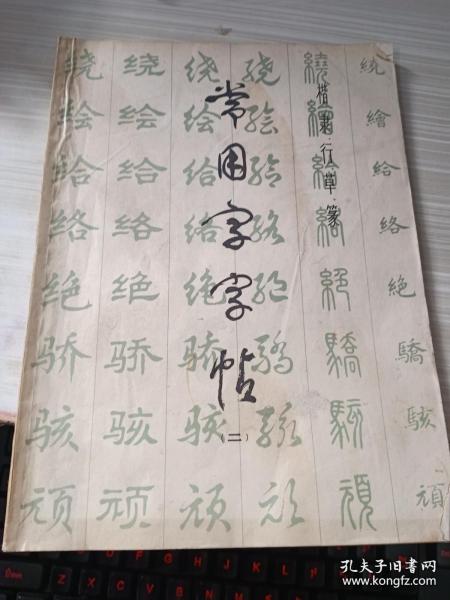 常用字字帖
(二)
楷·隶·行·草·篆
绕绘给络绝骄骇顽
绕绘给络绝骄骇顽
绕绘给络绝骄骇顽
绕绘给络绝骄骇顽
繞繪給絡絕驕駭頑
繞繪給絡絶驕駭頑
孔夫子旧书网
kongfz.com